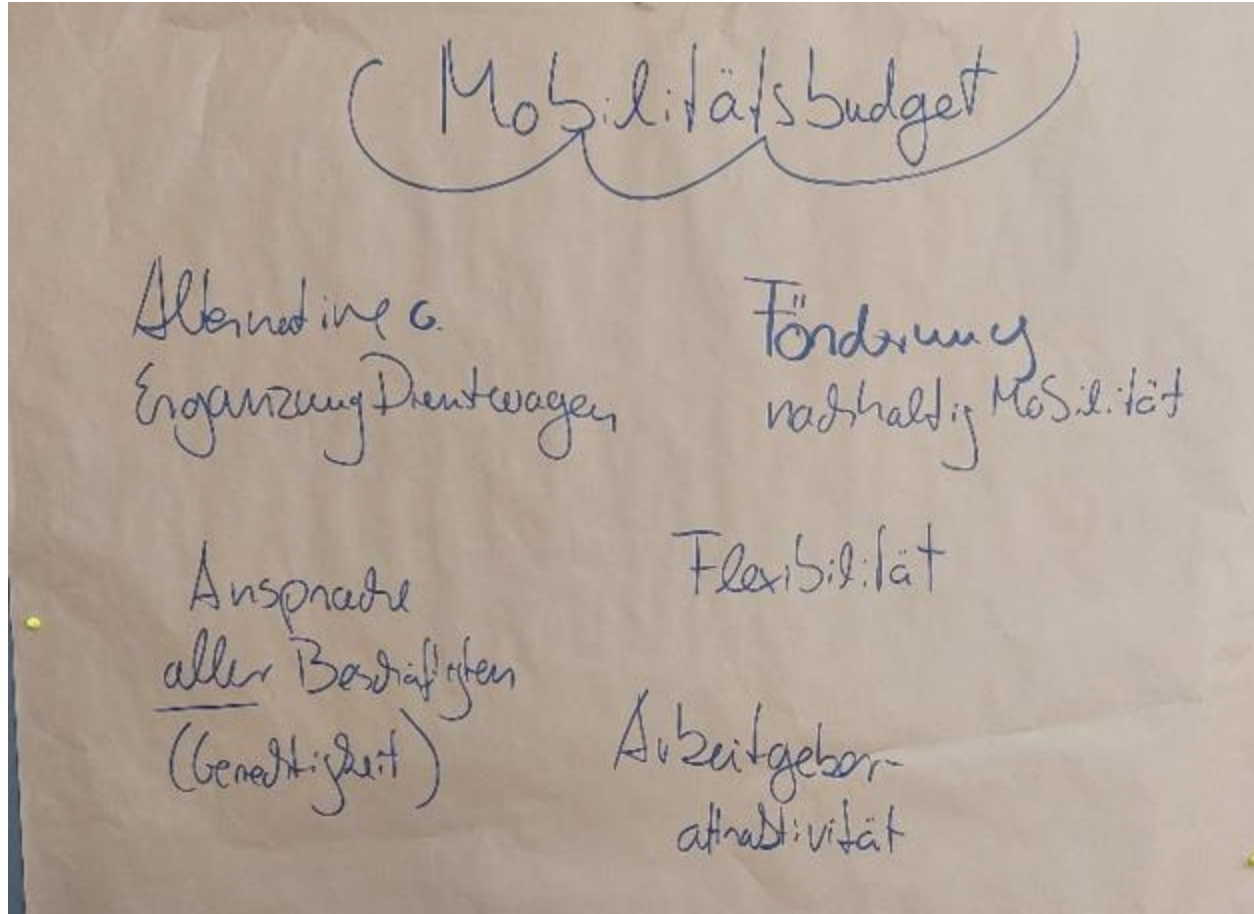 Mobilitätsbudget
Alternative o.
Ergänzung Dienstwagen
Förderung
nachhaltig Mobilität
Ansprache
aller Beschäftigten
(Gerechtigkeit)
Flexibilität
Arbeitgeber-
attraktivität